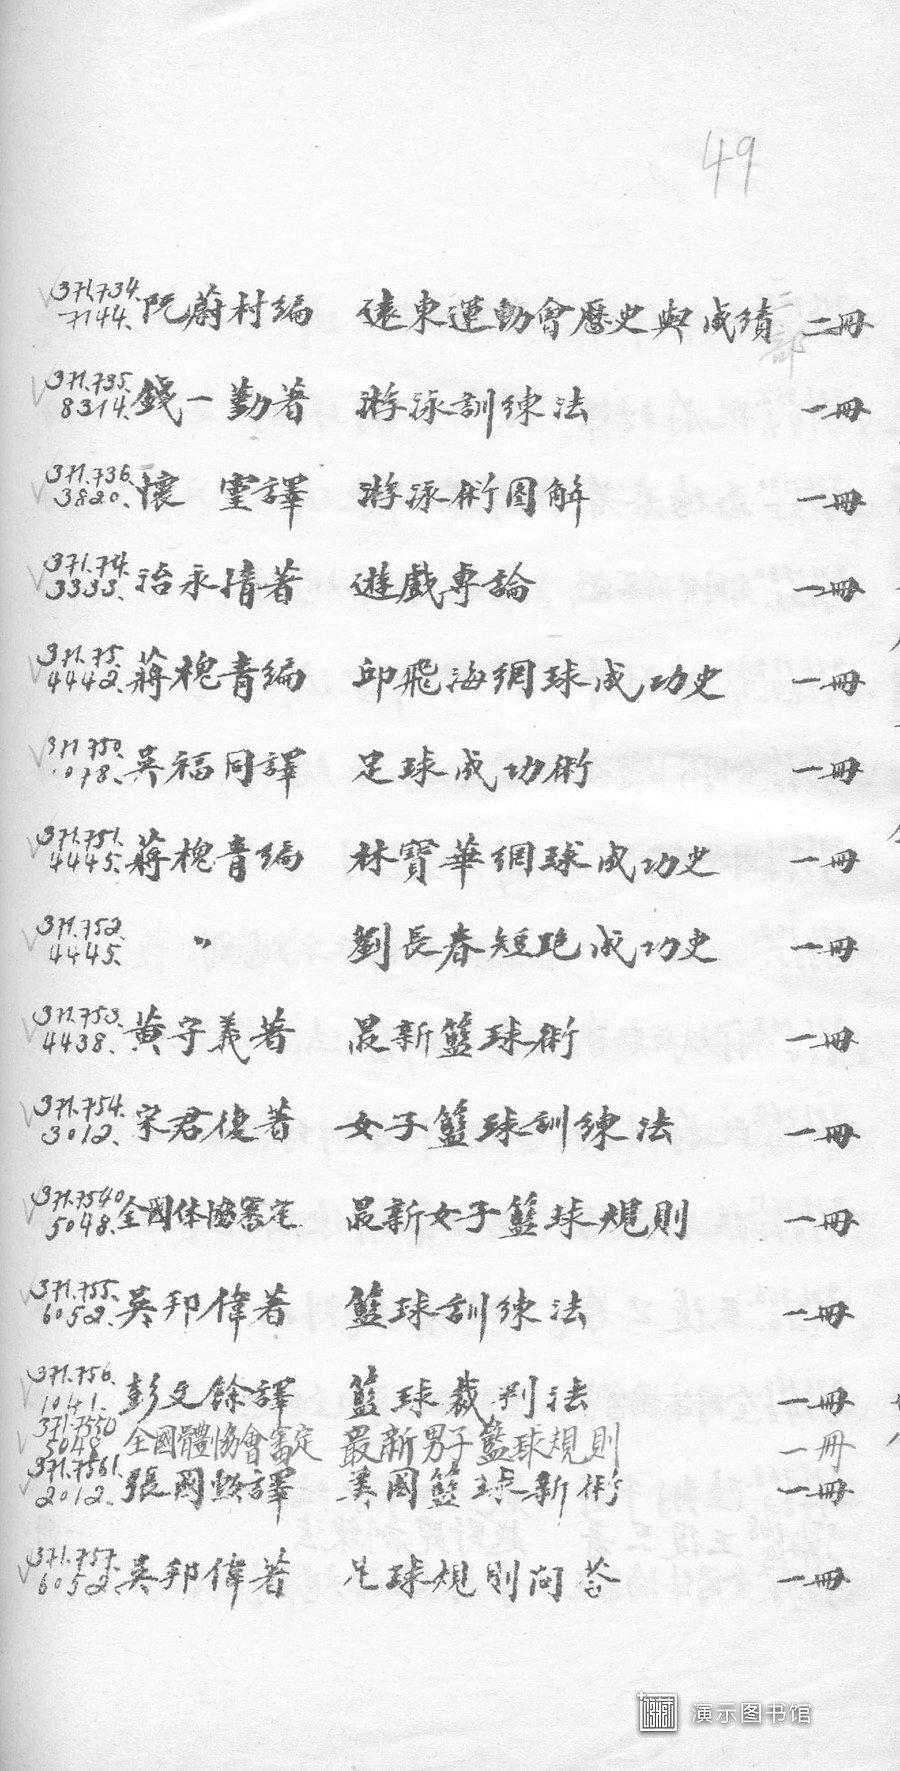 49
371.734. 阮蔚村編 遠東運動會歷史與成績 二冊
7144. 三部
371.735. 錢一勤著 游泳訓練法 一冊
8314.
371.736. 懷 霊譯 游泳術图解 一冊
3820.
371.74. 治永清著 遊戲專論 一冊
3333.
371.75. 蔣槐青編 邱飛海網球成功史 一冊
4442.
371.750. 吳福同譯 足球成功術 一冊
371.751. 蔣槐青編 林寶華網球成功史 一冊
4445.
371.752. 〃 劉長春短跑成功史 一冊
4445.
371.753. 黄守義著 最新籃球術 一冊
4438.
371.754. 宋君復著 女子籃球訓練法 一冊
3012.
371.7540 全國体協審定 最新女子籃球規則 一冊
5048.
371.755. 吳邦偉著 籃球訓練法 一冊
6052.
371.756. 彭文餘譯 籃球裁判法 一冊
1041.
371.7550 全國體協會審定 最新男子籃球規則 一冊
5048
371.7561. 張國勲譯 美國籃球新術 一冊
2012.
371.757. 吳邦偉著 足球規則问荅 一冊
6052.
演示图书馆